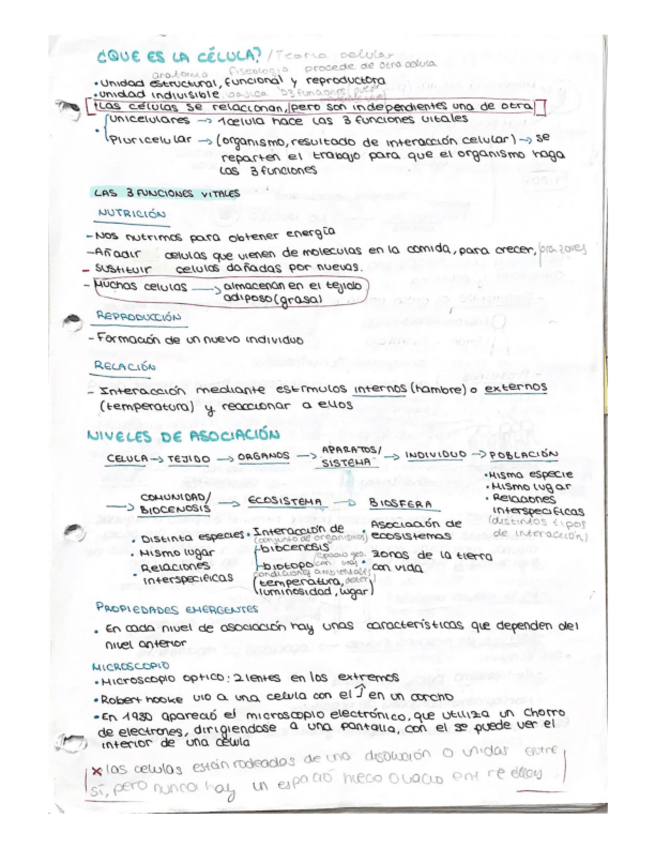 ¿QUE ES LA CÉLULA? / Teoria celular
anatomia fisiologia procede de otra celula
• Unidad estructural, funcional y reproductora
• Unidad indivisible basica 3 funciones
Las células se relacionan, pero son independientes una de otra
Unicelulares → 1celula hace las 3 funciones vitales
Pluricelular → (organismo, resultado de interacción celular) → se
reparten el trabajo para que el organismo haga
las 3 funciones
LAS 3 FUNCIONES VITALES
NUTRICIÓN
- Nos nutrimos para obtener energía
- Añadir celulas que vienen de moleculas en la comida, para crecer,
- Sustituir celulas dañadas por nuevas.
- Muchas celulas → almacenan en el tejido
adiposo (grasa)
REPRODUCCIÓN
- Formación de un nuevo individuo
RELACIÓN
- Interacción mediante estímulos internos (hambre) o externos
(temperatura) y reaccionar a ellos
NIVELES DE ASOCIACIÓN
CELULA → TEJIDO → ORGANOS → APARATOS/ SISTEMA → INDIVIDUO → POBLACIÓN
• Misma especie
• Mismo lugar
• Relaciones
interspecificas
(distintos tipos
de interacción)
→ COMUNIDAD/ BIOCENOSIS → ECOSISTEMA → BIOSFERA
• Distinta especies
• Mismo lugar
Relaciones
• interspecificas
• Interacción de
(conjunto de organismos)
- biocenosis
- biotopo espacio geo. con unas
condiciones ambientales
(temperatura,
luminosidad, lugar)
• Asociación de
ecosistemas
• zonas de la tierra
con vida
PROPIEDADES EMERGENTES
• En cada nivel de asociación hay unas características que dependen del
nivel anterior
MICROSCOPIO
• Microscopio optico: 2 lentes en los extremos
• Robert hooke vio a una celula con el ↑ en un corcho
• En 1930 apareció el microscopio electrónico, que utiliza un chorro
de electrones, dirigiendose a una pantalla, con el se puede ver el
interior de una célula
* las celulas están rodeadas de una disolución o unidas entre
sí, pero nunca hay un espacio hueco o vacio entre ellas